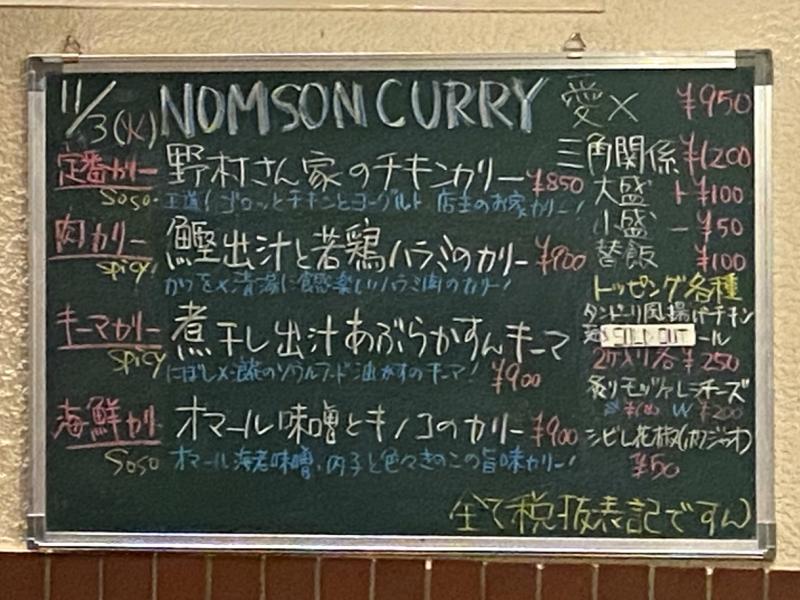 11/3(火) NOMSON CURRY
定番カリー 野村さん家のチキンカリー ¥850
SoSo. 王道!ゴロッとチキンとヨーグルト 店主のお家カリー!
肉カリー 鰹出汁と若鶏ハラミのカリー ¥900
spicy! かつを×清湯に食感楽しいハラミ肉のカリー!
キーマカリー 煮干し出汁あぶらかすんキーマ
spicy にぼし× のソウルフード油かすのキーマ! ¥900
海鮮カリー オマール味噌とキノコのカリー ¥900
SoSo オマール海老味噌、内子と色々きのこの旨味カリー!
愛× ¥950
三角関係 ¥1200
大盛 +¥100
小盛 -¥50
替飯 ¥100
トッピング各種
タンドーリ風揚げチキン
SOLD OUT ール
2ケ入り各¥250
炙りモッツァレラチーズ
¥100 W ¥200
シビレ花椒(ホアジャオ)
¥50
全て税抜表記ですん)